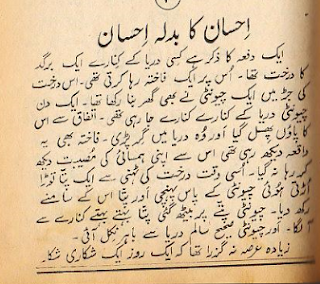 احسان کا بدلہ احسان
ایک دفعہ کا ذکر ہے کسی دریا کے کنارے ایک برگد
کا درخت تھا۔ اُس پر ایک فاختہ رہا کرتی تھی۔ اس درخت
کی جڑ میں ایک چیونٹی نے بھی گھر بنا رکھا تھا۔ ایک دن
چیونٹی دریا کے کنارے کنارے جا رہی تھی۔ اتفاق سے اس
کا پاؤں پھسل گیا اور وُہ دریا میں گر پڑی۔ فاختہ بھی یہ
واقعہ دیکھ رہی تھی اس سے اپنی ہمسائی کی مُصیبت دیکھ
کر رہا نہ گیا۔ اُسی وقت درخت کی ٹہنی سے ایک پتا توڑا
اُڑتی ہُوئی چیونٹی کے پاس پہنچی اور پتا اس کے سامنے
رکھ دیا۔ چیونٹی پتے پر بیٹھ گئی پتا بہتے بہتے کنارے سے
آ لگا۔ اور چیونٹی صحیح سالم دریا سے باہر نکل آئی۔
زیادہ عرصہ نہ گزرا تھا کہ ایک روز ایک شکاری شکا۔